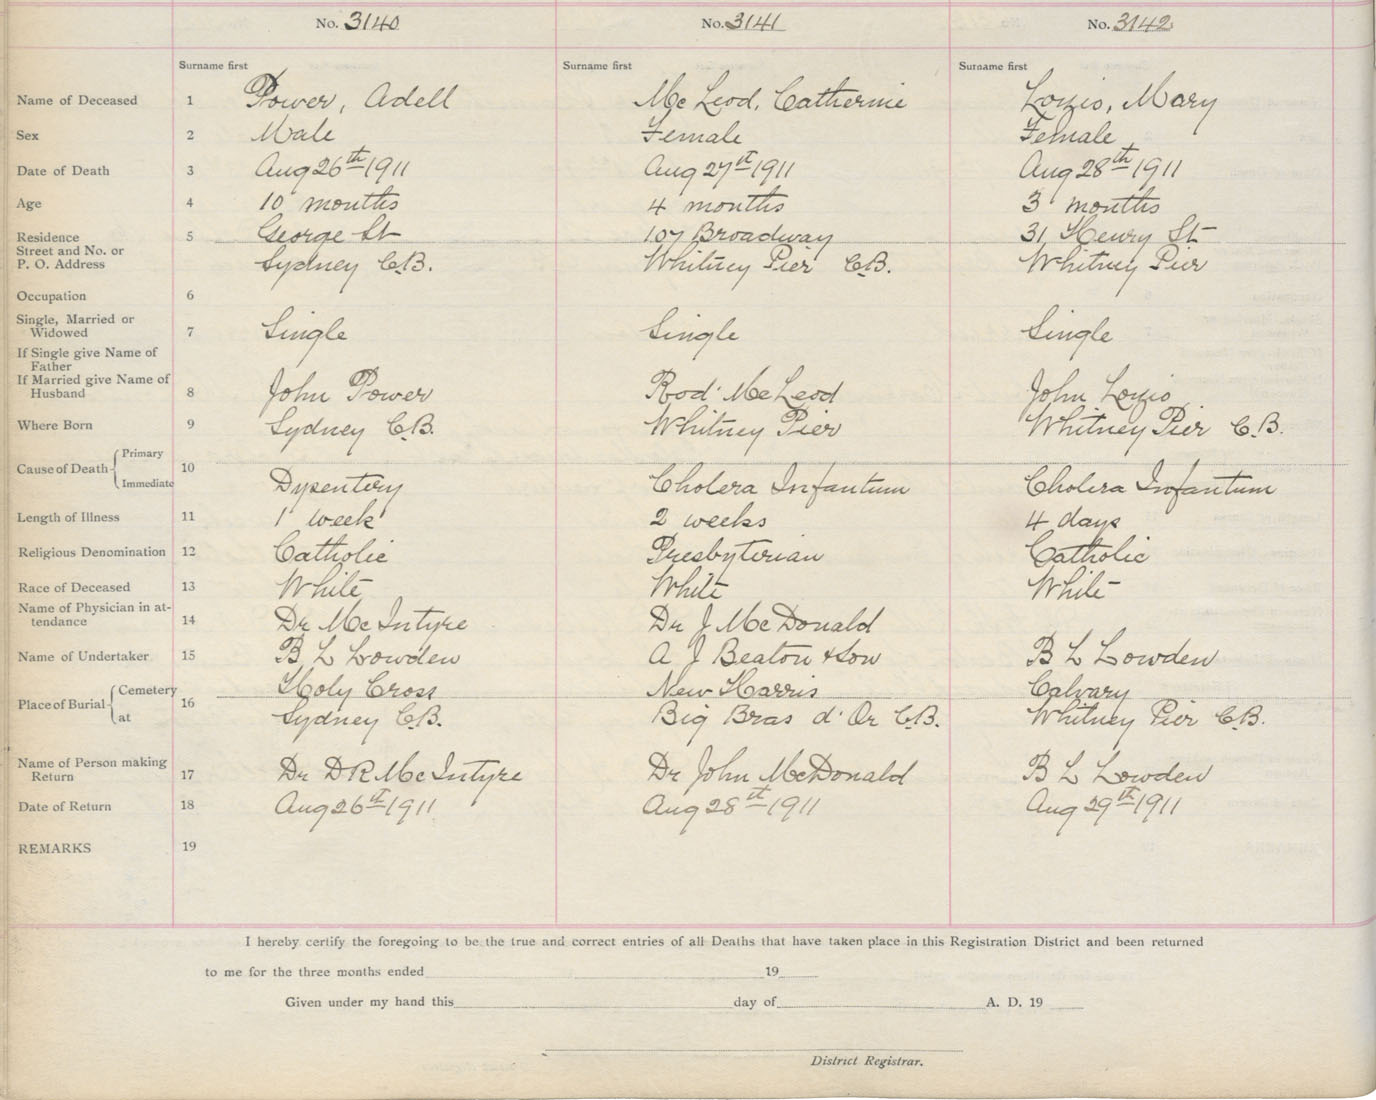 No. 3140 No. 3141 No. 3142
Surname first Surname first Surname first
Name of Deceased 1 Power, Adell McLeod, Catherine Lozio, Mary
Sex 2 Male Female Female
Date of Death 3 Aug 26th 1911 Aug 27st 1911 Aug 28th 1911
Age 4 10 months 4 months 3 months
Residence 5 George St 107 Broadway 31 Henry St
Street and No. or
P. O. Address Sydney C.B. Whitney Pier C.B. Whitney Pier
Occupation 6
Single, Married or
Widowed 7 Single Single Single
If Single give Name of
Father
If Married give Name of
Husband 8 John Power Rod McLeod John Lozio
Where Born 9 Sydney C.B. Whitney Pier Whitney Pier C.B.
Primary
Cause of Death 10
Immediate Dysentery Cholera Infantum Cholera Infantum
Length of Illness 11 1 week 2 weeks 4 days
Religious Denomination 12 Catholic Presbyterian Catholic
Race of Deceased 13 White White White
Name of Physician in at-
tendance 14 Dr McIntyre Dr J McDonald
Name of Undertaker 15 B L Lowden A J Beaton & Son B L Lowden
Cemetery Holy Cross New Harris Calvary
Place of Burial 16
at Sydney C.B. Big Bras d'Or C.B. Whitney Pier C.B.
Name of Person making
Return 17 Dr D R McIntyre Dr John McDonald B L Lowden
Date of Return 18 Aug 26st 1911 Aug 28th 1911 Aug 29th 1911
REMARKS 19
I hereby certify the foregoing to be the true and correct entries of all Deaths that have taken place in this Registration District and been returned
to me for the three months ended 19
Given under my hand this day of A. D. 19
District Registrar.